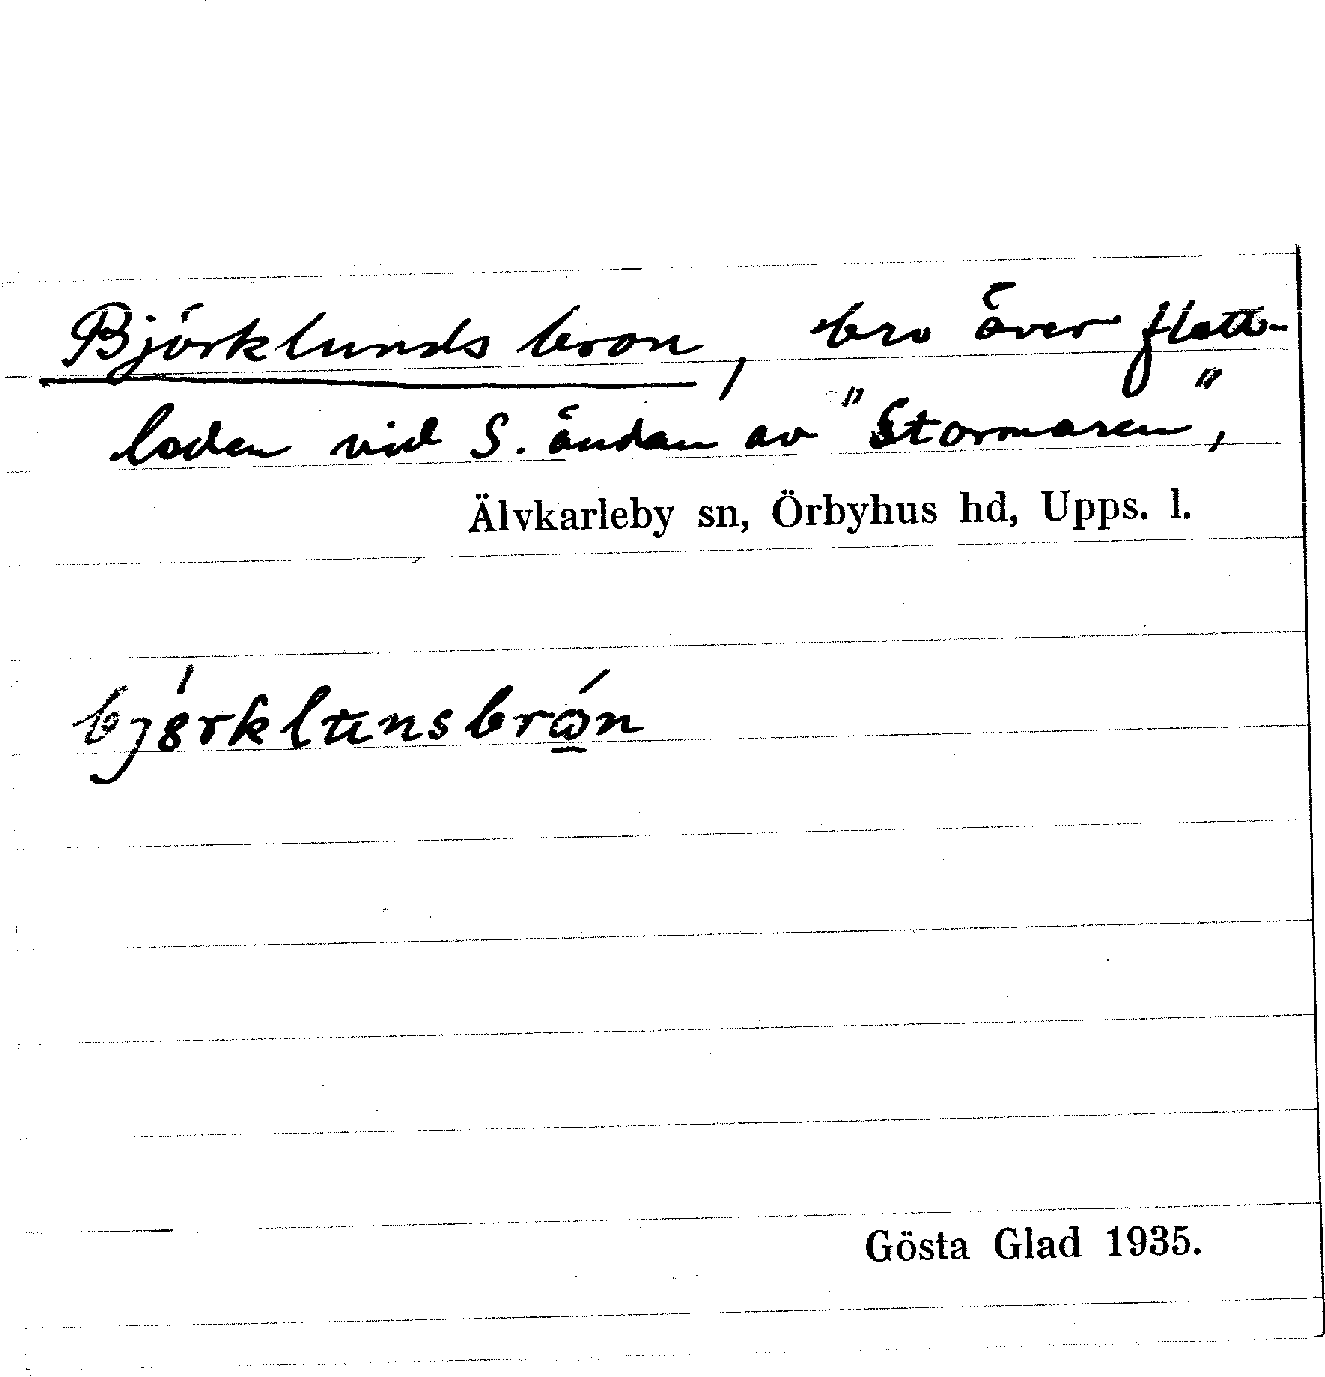 Björklundsbron, bro över flott-
leden vid S. ändan av "Stormaren",
Älvkarleby sn, Örbyhus hd, Upps. l.
Gösta Glad 1935.